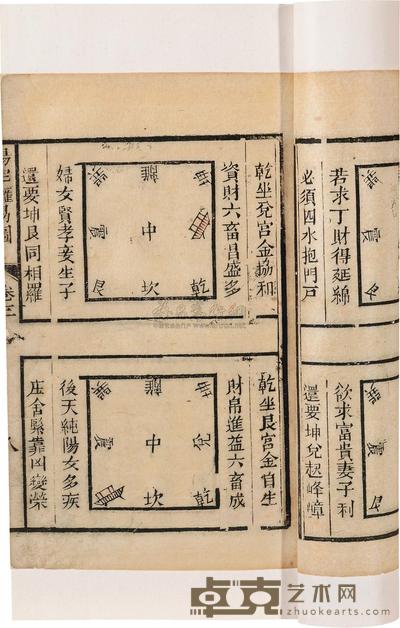 若求丁財得延綿
必須四水抱門戸
巽
震
艮
欲求富貴妻子利
還要坤兌起峰嶂
巽
震
艮
乾坐兌宮金協和
資財六畜昌盛多
巽 離 坤
震 中
艮 坎 乾
婦女賢孝妾生子
還要坤艮同相羅
乾坐艮宮金自生
財帛進益六畜成
巽 離 坤
震 中 兌
坎 乾
後天純陽女多疾
庄舍緊靠凶變榮
圖
卷
八
卓克艺术网
zhuokearts.com